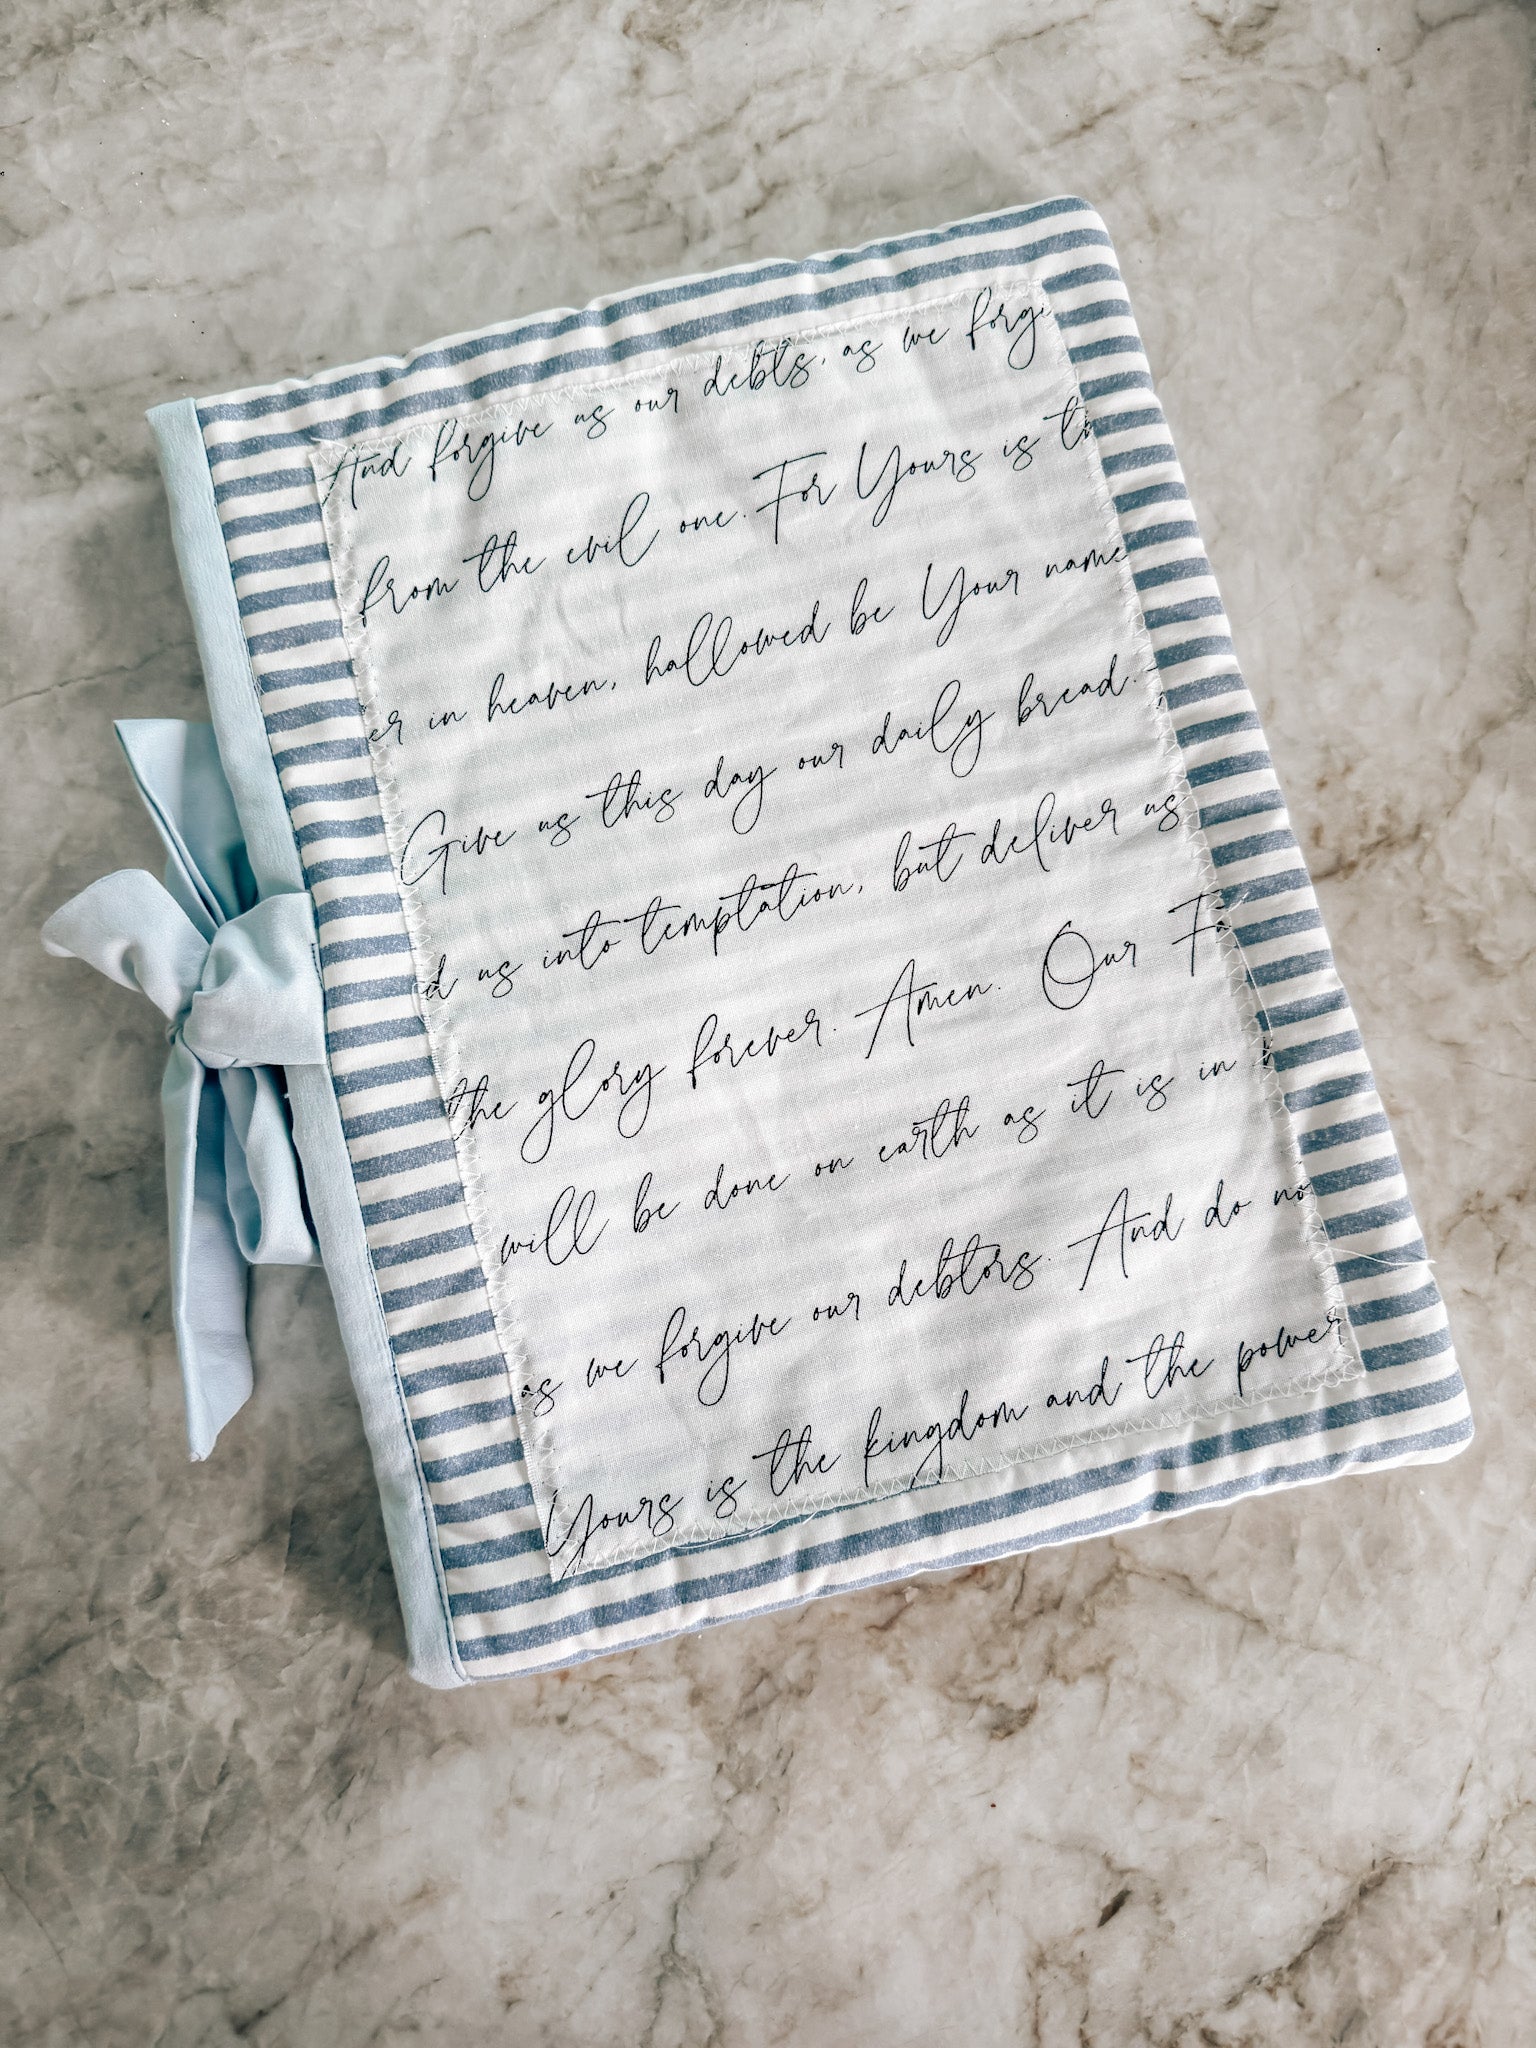 And forgive us our debts, as we forgi
from the evil one. For Yours is th
er in heaven, hallowed be Your name
Give us this day our daily bread.
d us into temptation, but deliver us
the glory forever. Amen. Our Fa
will be done on earth as it is in h
as we forgive our debtors. And do no
Yours is the kingdom and the power